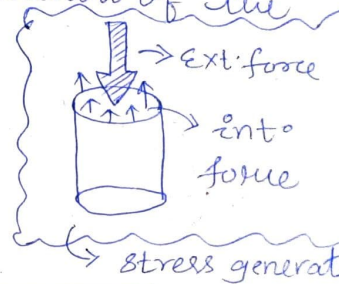 of the
Ext. force
int.
force
stress generat